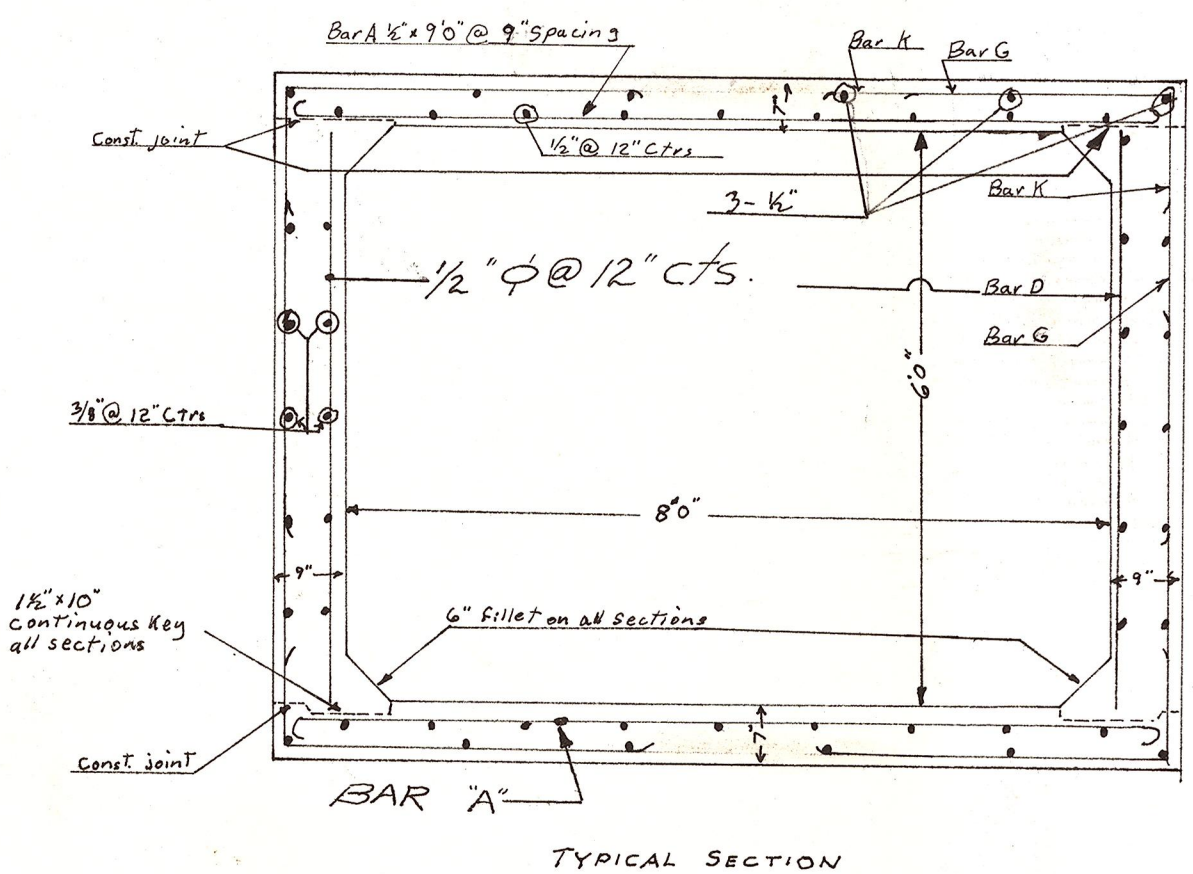 Bar A ½" x 9'0" @ 9" Spacing
Bar K
Bar G
7"
Const. joint
½" @ 12" Ctrs
3 - ½"
Bar K
1/2" ϕ @ 12" cts.
Bar D
Bar G
6'0"
3/8" @ 12" Ctrs
8'0"
9"
9"
1½" x 10"
continuous Key
all sections
6" fillet on all sections
7"
Const. joint
BAR "A"
TYPICAL SECTION